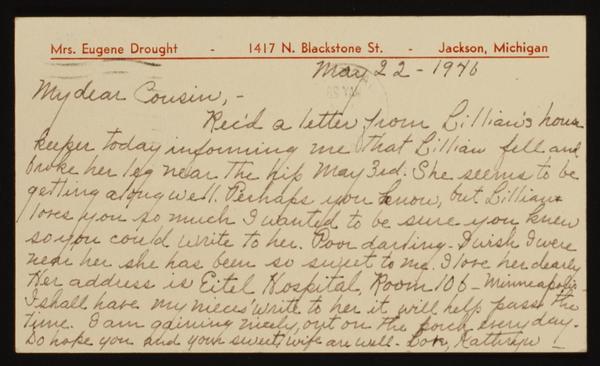 Mrs. Eugene Drought - 1417 N. Blackstone St. - Jackson, Michigan
May 22 - 1946
My dear Cousin, -
Rec'd a letter from Lillian's house
keeper today informing me that Lillian fell and
broke her leg near the hip May 3rd. She seems to be
getting along well. Perhaps you know, but Lillian
loves you so much I wanted to be sure you knew
so you could write to her. Poor darling - I wish I were
near her she has been so sweet to me. I love her dearly
Her address is Eitel Hospital, Room 106 - Minneapolis
I shall have my nieces write to her it will help pass the
time. I am gaining nicely, out on the porch every day.
Do hope you and your sweet wife are well - Love, Kathryn